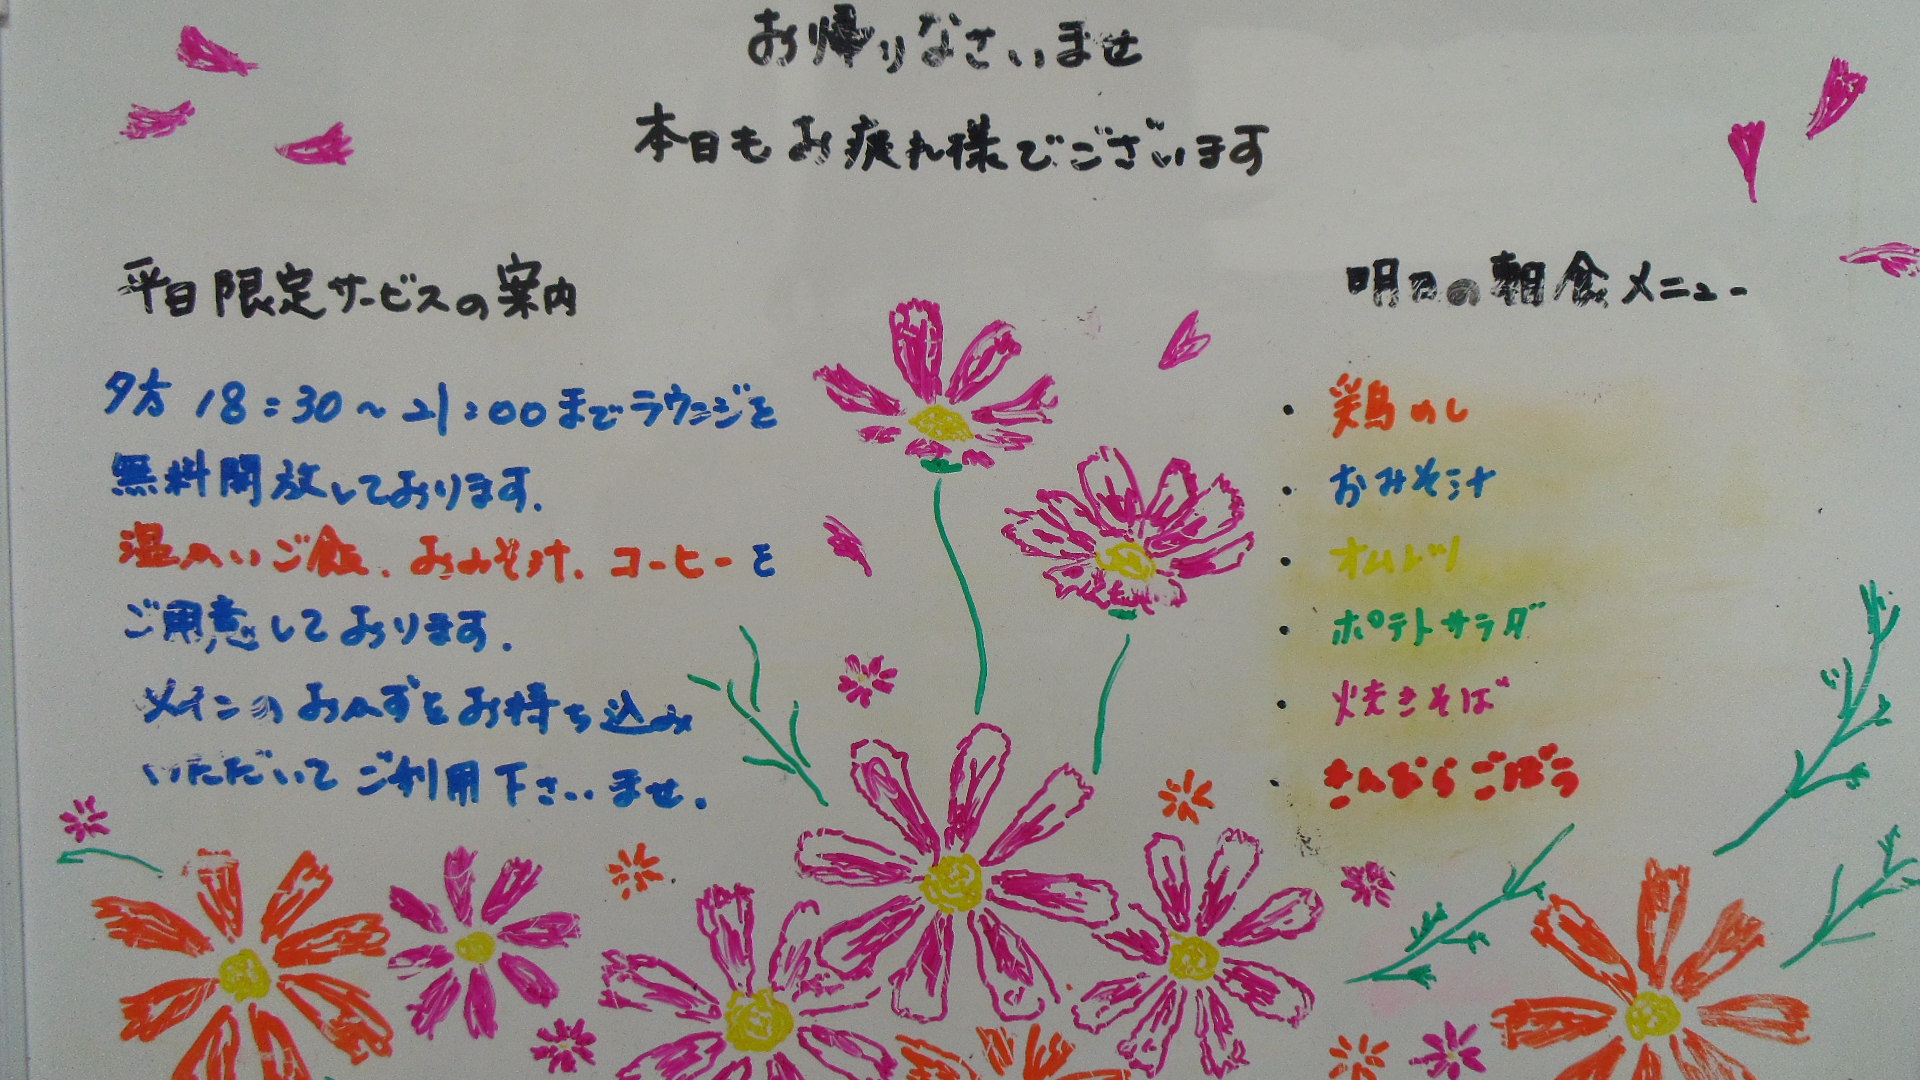 お帰りなさいませ
本日もお疲れ様でございます
平日限定サービスの案内
夕方 18:30～21:00までラウンジを
無料開放しております.
温かいご飯、おみそ汁、コーヒーを
ご用意しております.
メインのおかずをお持ち込み
いただいてご利用下さいませ.
明日の朝食メニュー
・鶏めし
・おみそ汁
・オムレツ
・ポテトサラダ
・焼きそば
・きんぴらごぼう